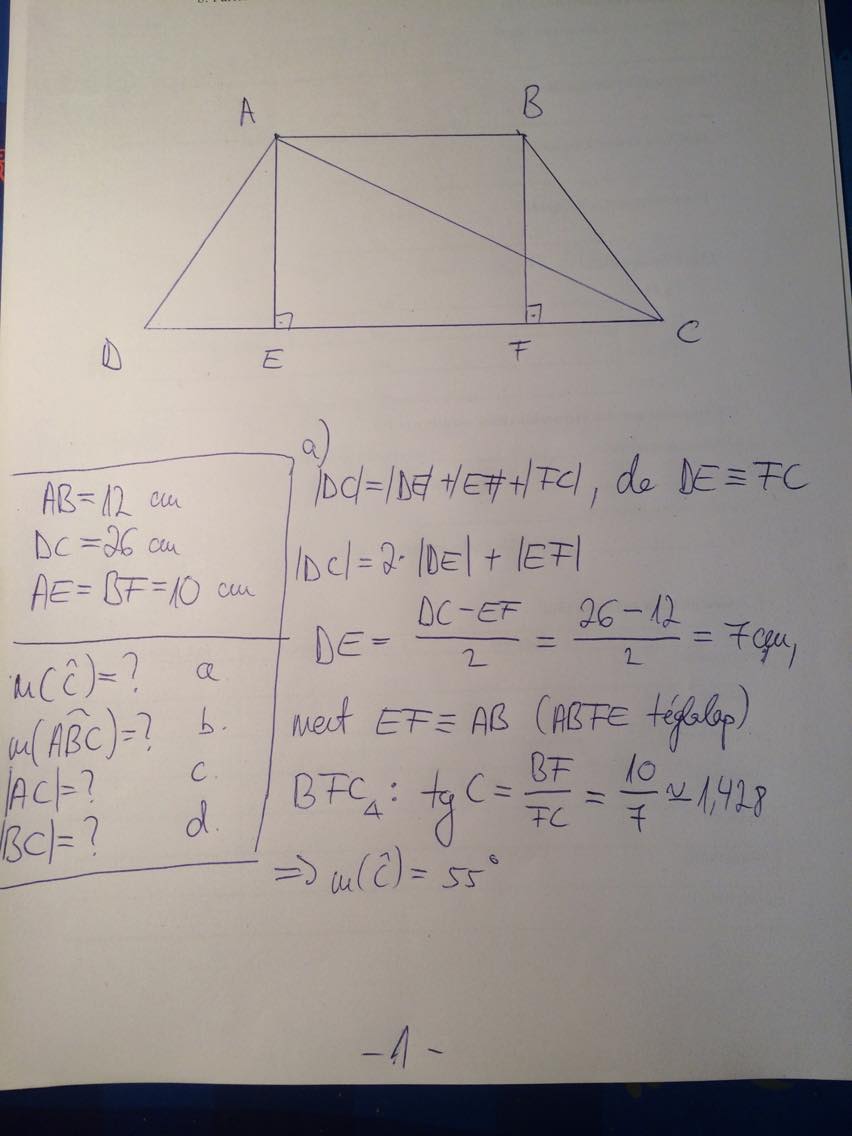 A B
D E F C
AB=12 cm
DC=26 cm
AE=BF=10 cm
m(Ĉ)=? a
m(AB̂C)=? b.
|AC|=? c.
|BC|=? d.
a)
|DC|=|DE|+|EF|+|FC|, de DE≡FC
|DC|=2·|DE|+|EF|
DE = (DC-EF)/2 = (26-12)/2 = 7cm,
mert EF≡AB (ABFE téglalap)
BFC△: tg C = BF/FC = 10/7 ≃ 1,428
⇒ m(Ĉ) = 55°
-1-